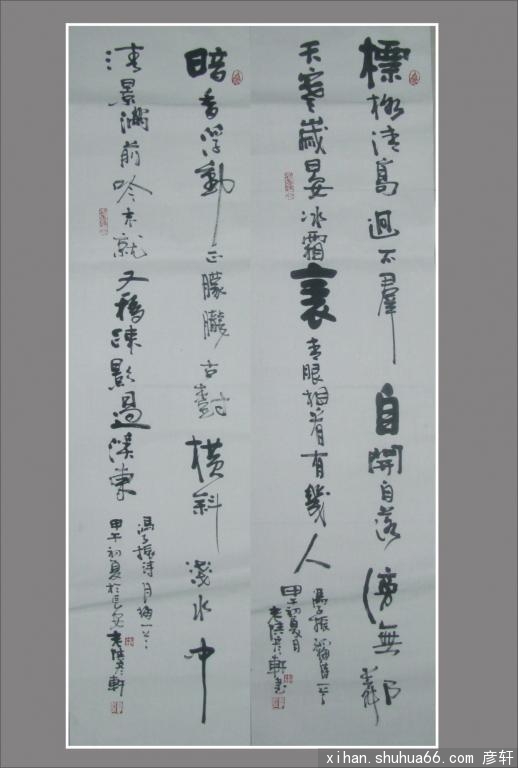 標格清高迥不群自開自落傍無鄰
天寒歲晏冰霜裏青眼相看有幾人
馮子振
甲午初夏月
老陝彥軒書
暗香浮動正朦朧古樹橫斜淺水中
清景滿前吟未就又移疎影過溪東
馮子振詩月梅一首
甲午初夏於長安老陝彥軒
xihan.shuhua66.com 彦轩